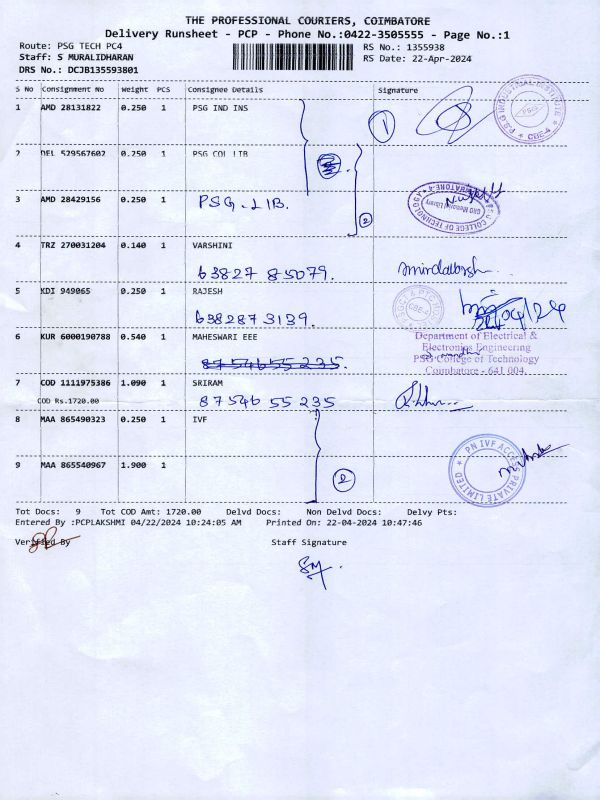 THE PROFESSIONAL COURIERS, COIMBATORE
Delivery Runsheet - PCP - Phone No.:0422-3505555 - Page No.:1
Route: PSG TECH PC4 RS No.: 1355938
Staff: S MURALIDHARAN RS Date: 22-Apr-2024
DRS No.: DCJB135593801
S No Consignment No Weight PCS Consignee Details Signature
1 AMD 28131822 0.250 1 PSG IND INS 1
P.S.G INDUSTRIAL INSTITUTE PSG CBE-4
2 DEL 529567602 0.250 1 PSG COL LIB
3 AMD 28429156 0.250 1 PSG. LIB. 2
PSG COLLEGE OF TECHNOLOGY GRD Memorial Library COIMBATORE-4
4 TRZ 270031204 0.140 1 VARSHINI
63827 85079.
5 KDI 949065 0.250 1 RAJESH
638287 3139. 22/04/24
CBE-4
6 KUR 6000190788 0.540 1 MAHESWARI EEE
8754655235.
Department of Electrical &
Electronics Engineering
PSG College of Technology
Coimbatore - 641 004.
7 COD 1111975386 1.090 1 SRIRAM
COD Rs.1720.00 87546 55 235
8 MAA 865490323 0.250 1 IVF
PN IVF ACCESS PRIVATE LIMITED
9 MAA 865540967 1.900 1 2
Tot Docs: 9 Tot COD Amt: 1720.00 Delvd Docs: Non Delvd Docs: Delvy Pts:
Entered By :PCPLAKSHMI 04/22/2024 10:24:05 AM Printed On: 22-04-2024 10:47:46
Verified By Staff Signature
SM.